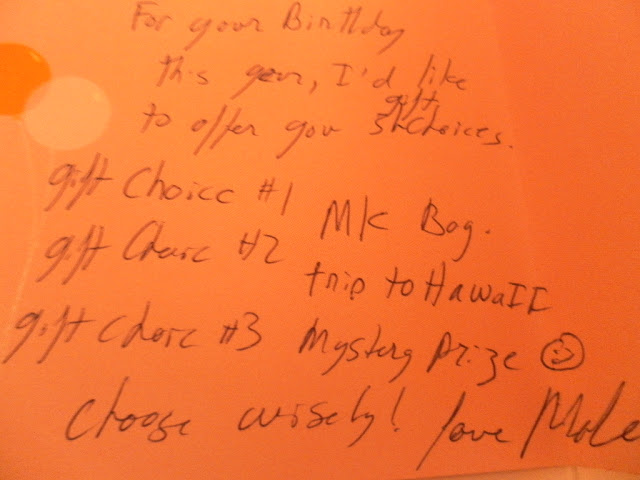 For your Birthday
this year, I'd like
to offer you 3 gift Choices.
gift Choice #1 MK Bag.
gift Choice #2 trip to HawaII
gift choice #3 Mystery Prize
Choose wisely! love